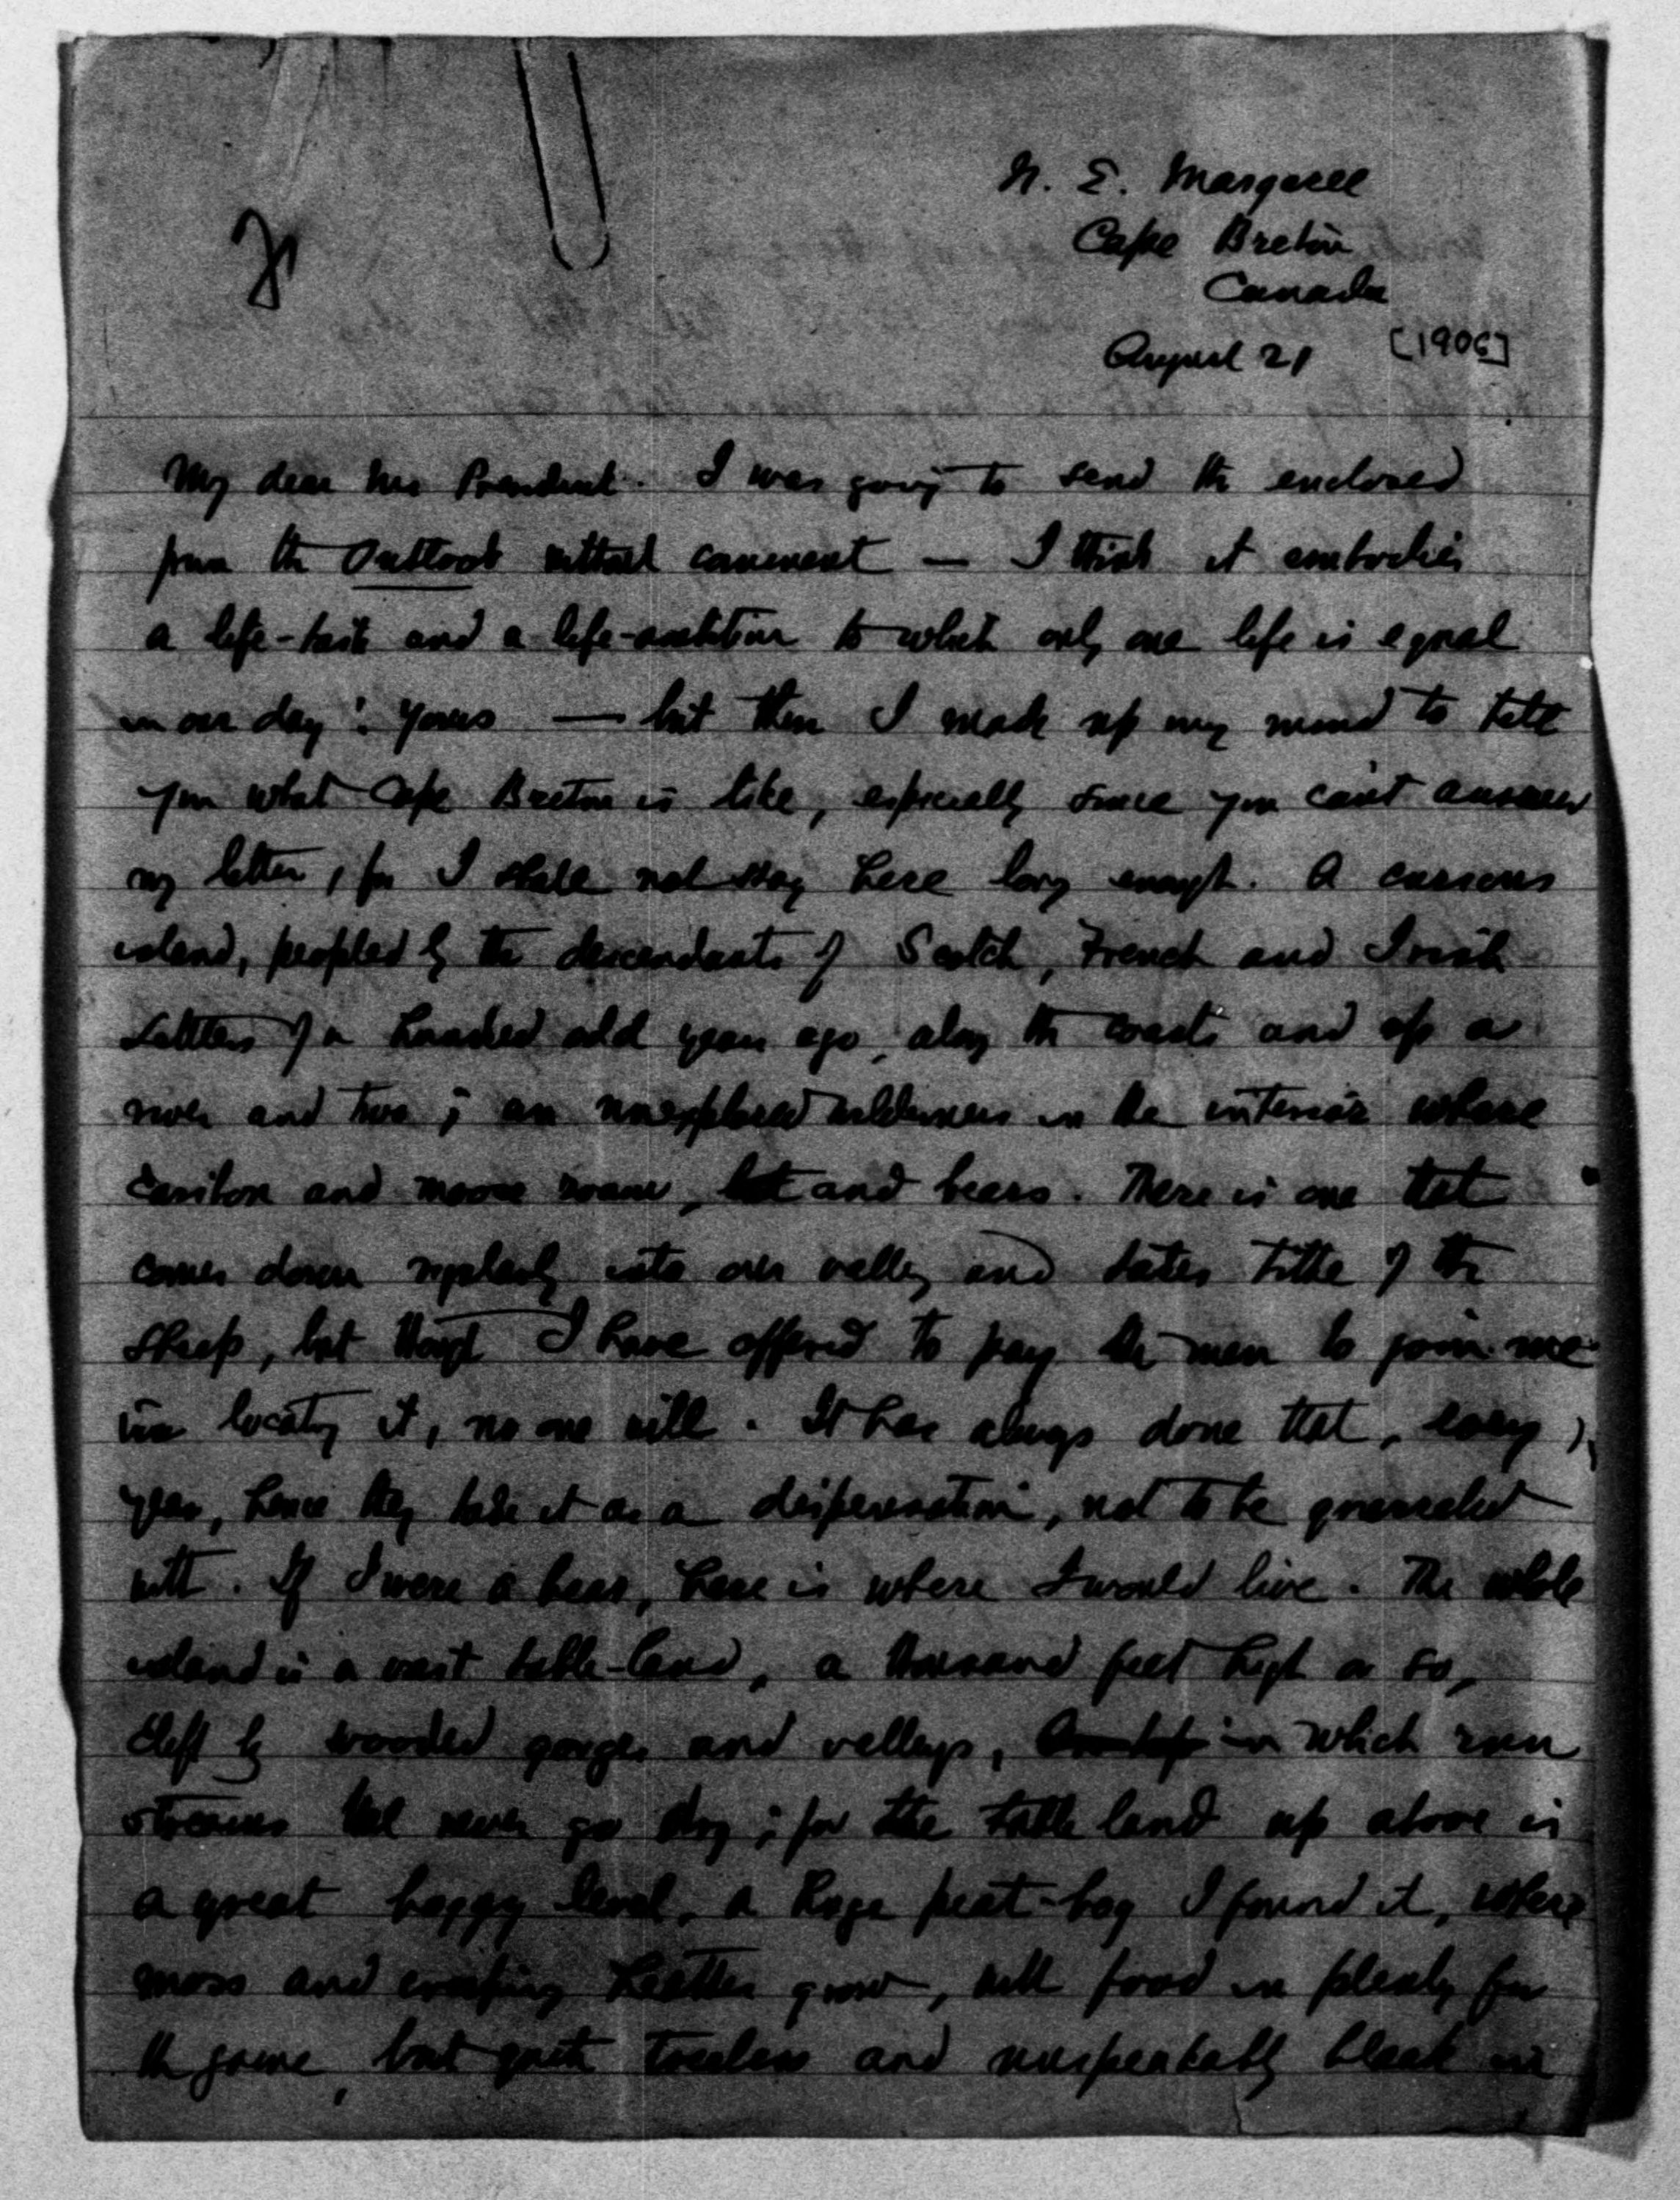 N. E. Margaree
Cape Breton
Canada
August 21 [1906]
My dear Mr. President. I was going to send the enclosed
from the Outlook without comment — I think it embodies
a life-task and a life-ambition to which only one life is equal
in our day: yours — but then I made up my mind to tell
you what Cape Breton is like, especially since you can't answer
my letter, for I shall not stay here long enough. A curious
island, peopled by the descendants of Scotch, French and Irish
settlers of a hundred odd years ago, along the coasts and up a
river and two; an unexplored wilderness in the interior where
caribou and moose roam, and bears. There is one that
comes down regularly into our valley and takes tithe of the
sheep, but though I have offered to pay the men to join me
in locating it, no one will. It has always done that, every
year, hence they take it as a dispensation, not to be quarreled
with. If I were a bear, here is where I would live. The whole
island is a vast table-land, a thousand feet high or so,
cleft by wooded gorges and valleys, in which run
streams that never go dry; for the table land up above is
a great boggy level, a huge peat-bog I found it, where
moss and creeping heather grow, with food in plenty for
the game, but quite treeless and unspeakably bleak in